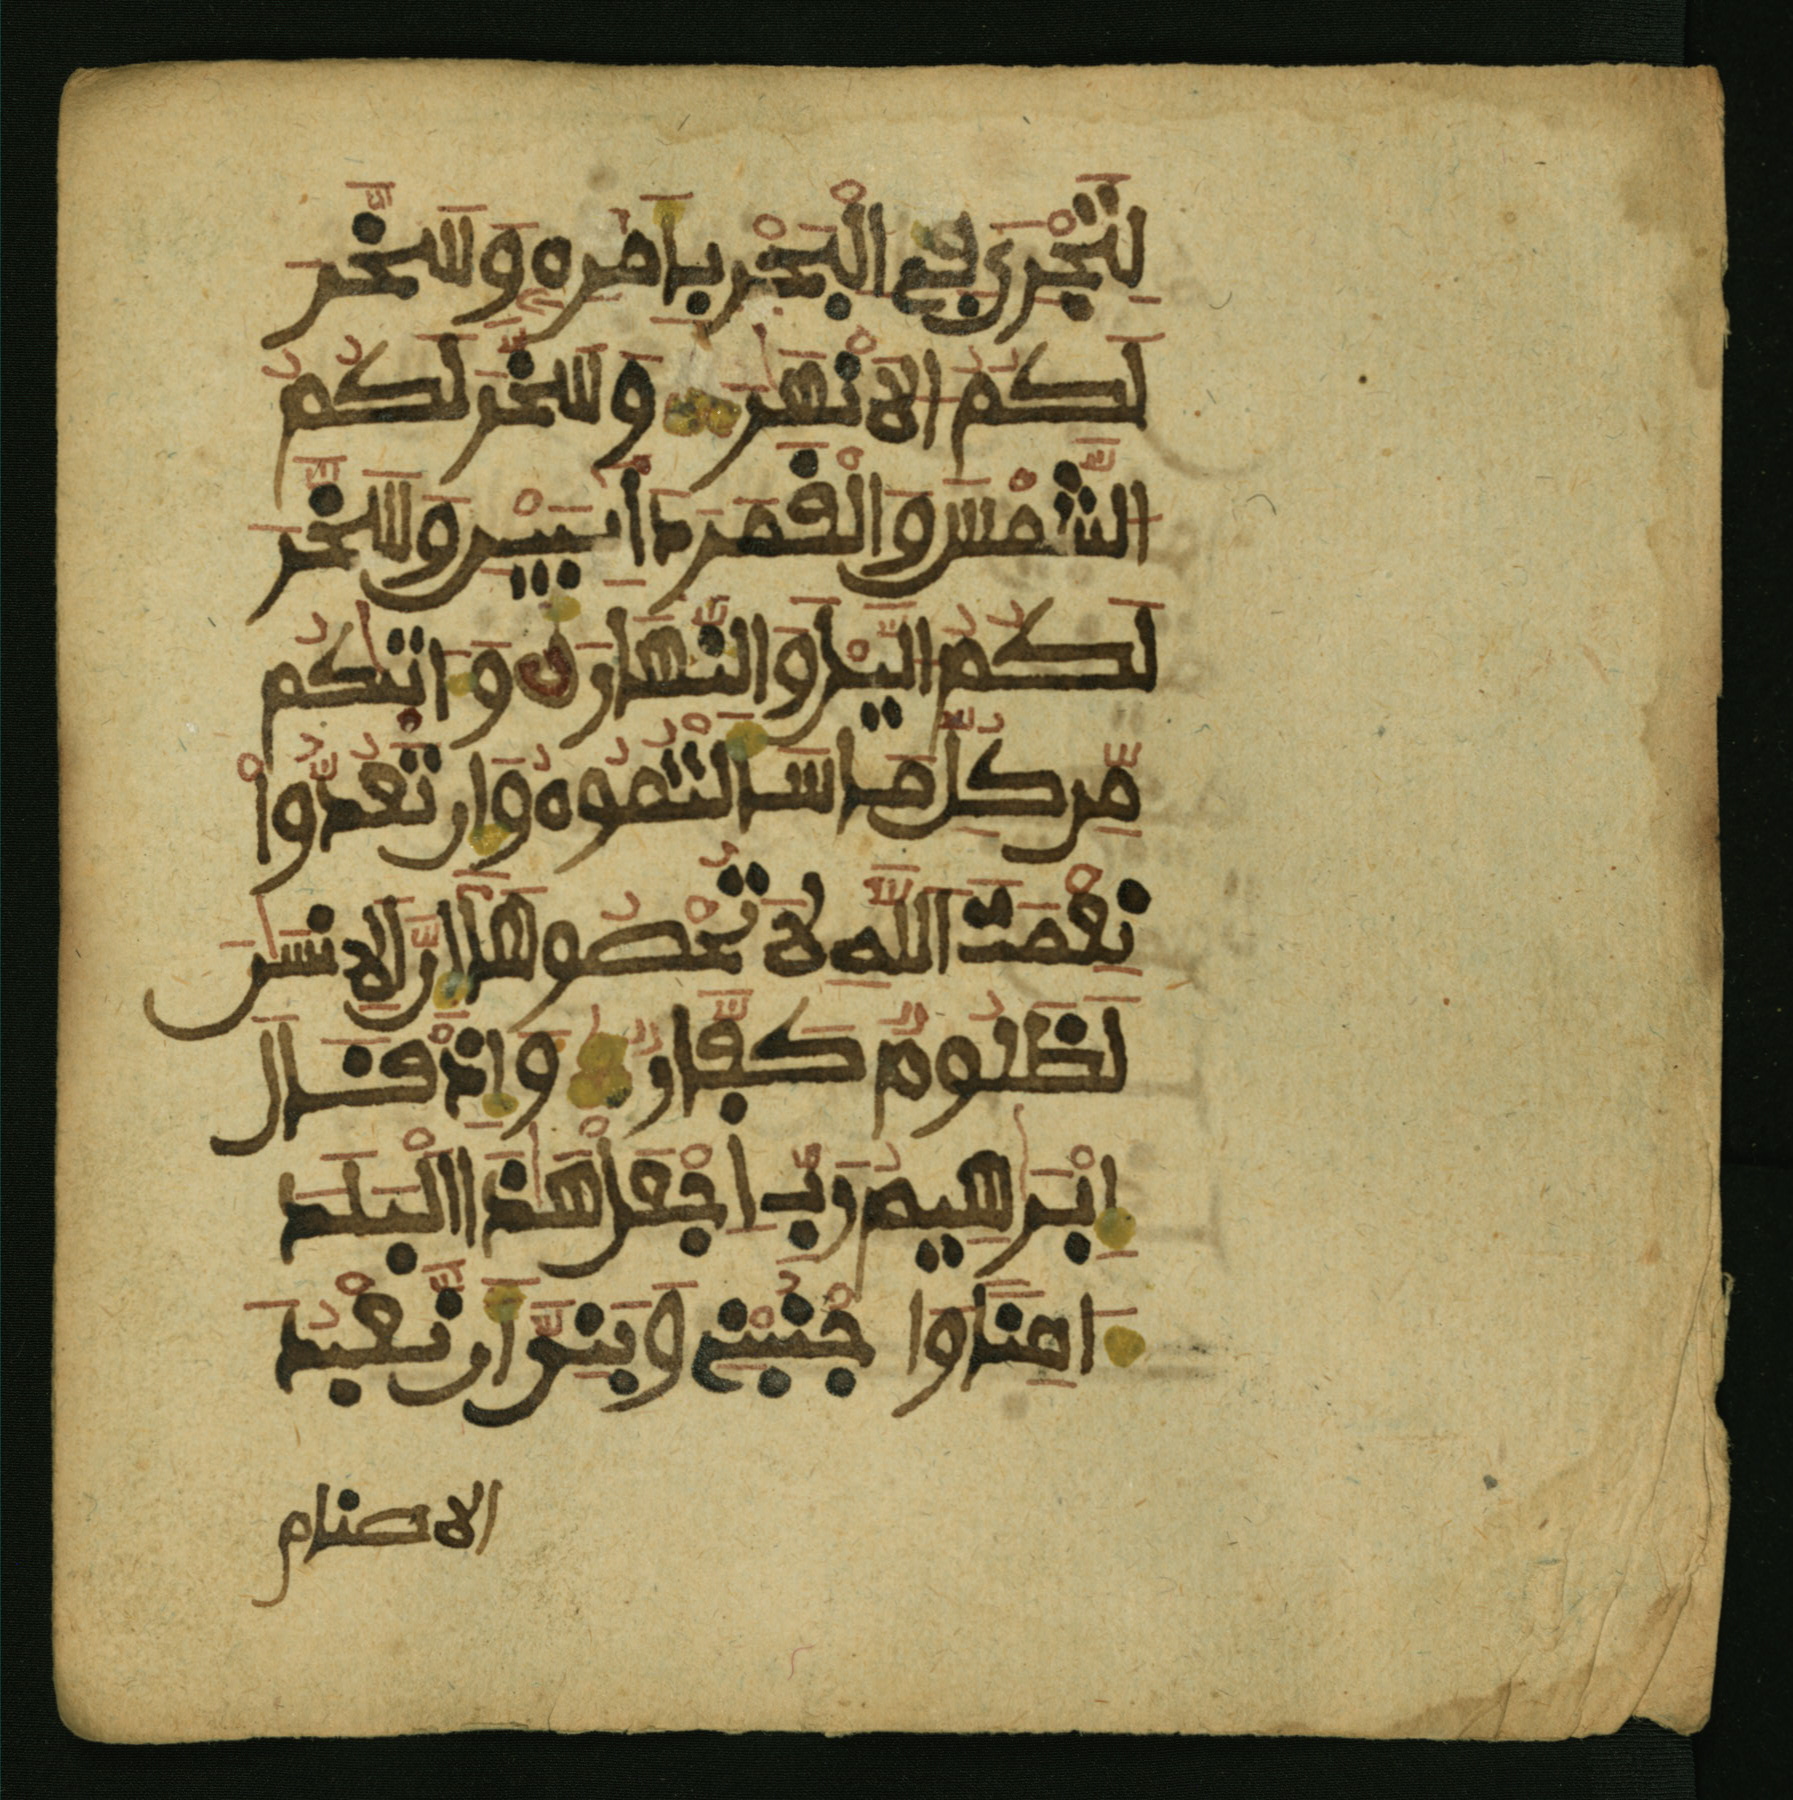 لِتَجْرِىَ فِى الْبَحْرِ بِأَمْرِهِ وَسَخَّرَ
لَكُمُ الْأَنْهَرَ وَسَخَّرَ لَكُمُ
الشَّمْسَ وَالْقَمَرَ دَآئِبَيْنِ وَسَخَّرَ
لَكُمُ الَّيْلَ وَالنَّهَارَ وَءَاتَىكُم
مِّن كُلِّ مَا سَأَلْتُمُوهُ وَإِن تَعُدُّوا۟
نِعْمَتَ اللَّهِ لَا تُحْصُوهَآ إِنَّ الْإِنسَنَ
لَظَلُومٌ كَفَّارٌ وَإِذْ قَالَ
إِبْرَهِيمُ رَبِّ اجْعَلْ هَذَا الْبَلَدَ
ءَامِنًا وَاجْنُبْنِى وَبَنِىَّ أَن نَّعْبُدَ
الاصنام